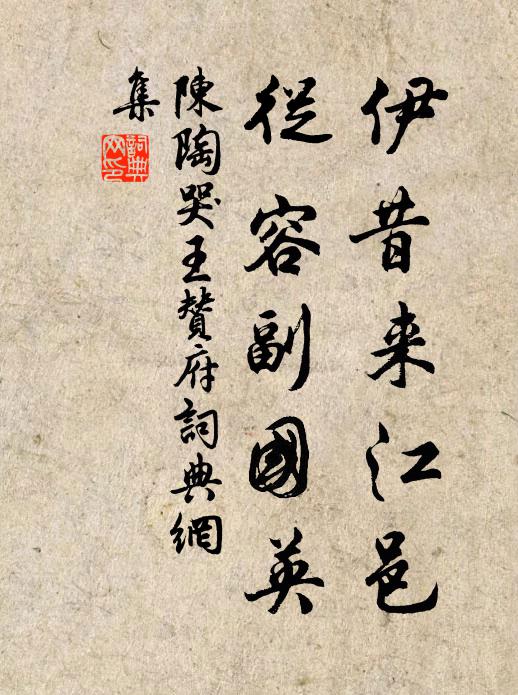 伊昔来江邑
從容副國英
陳陶哭王贊府詞典網
集
詞典
网印